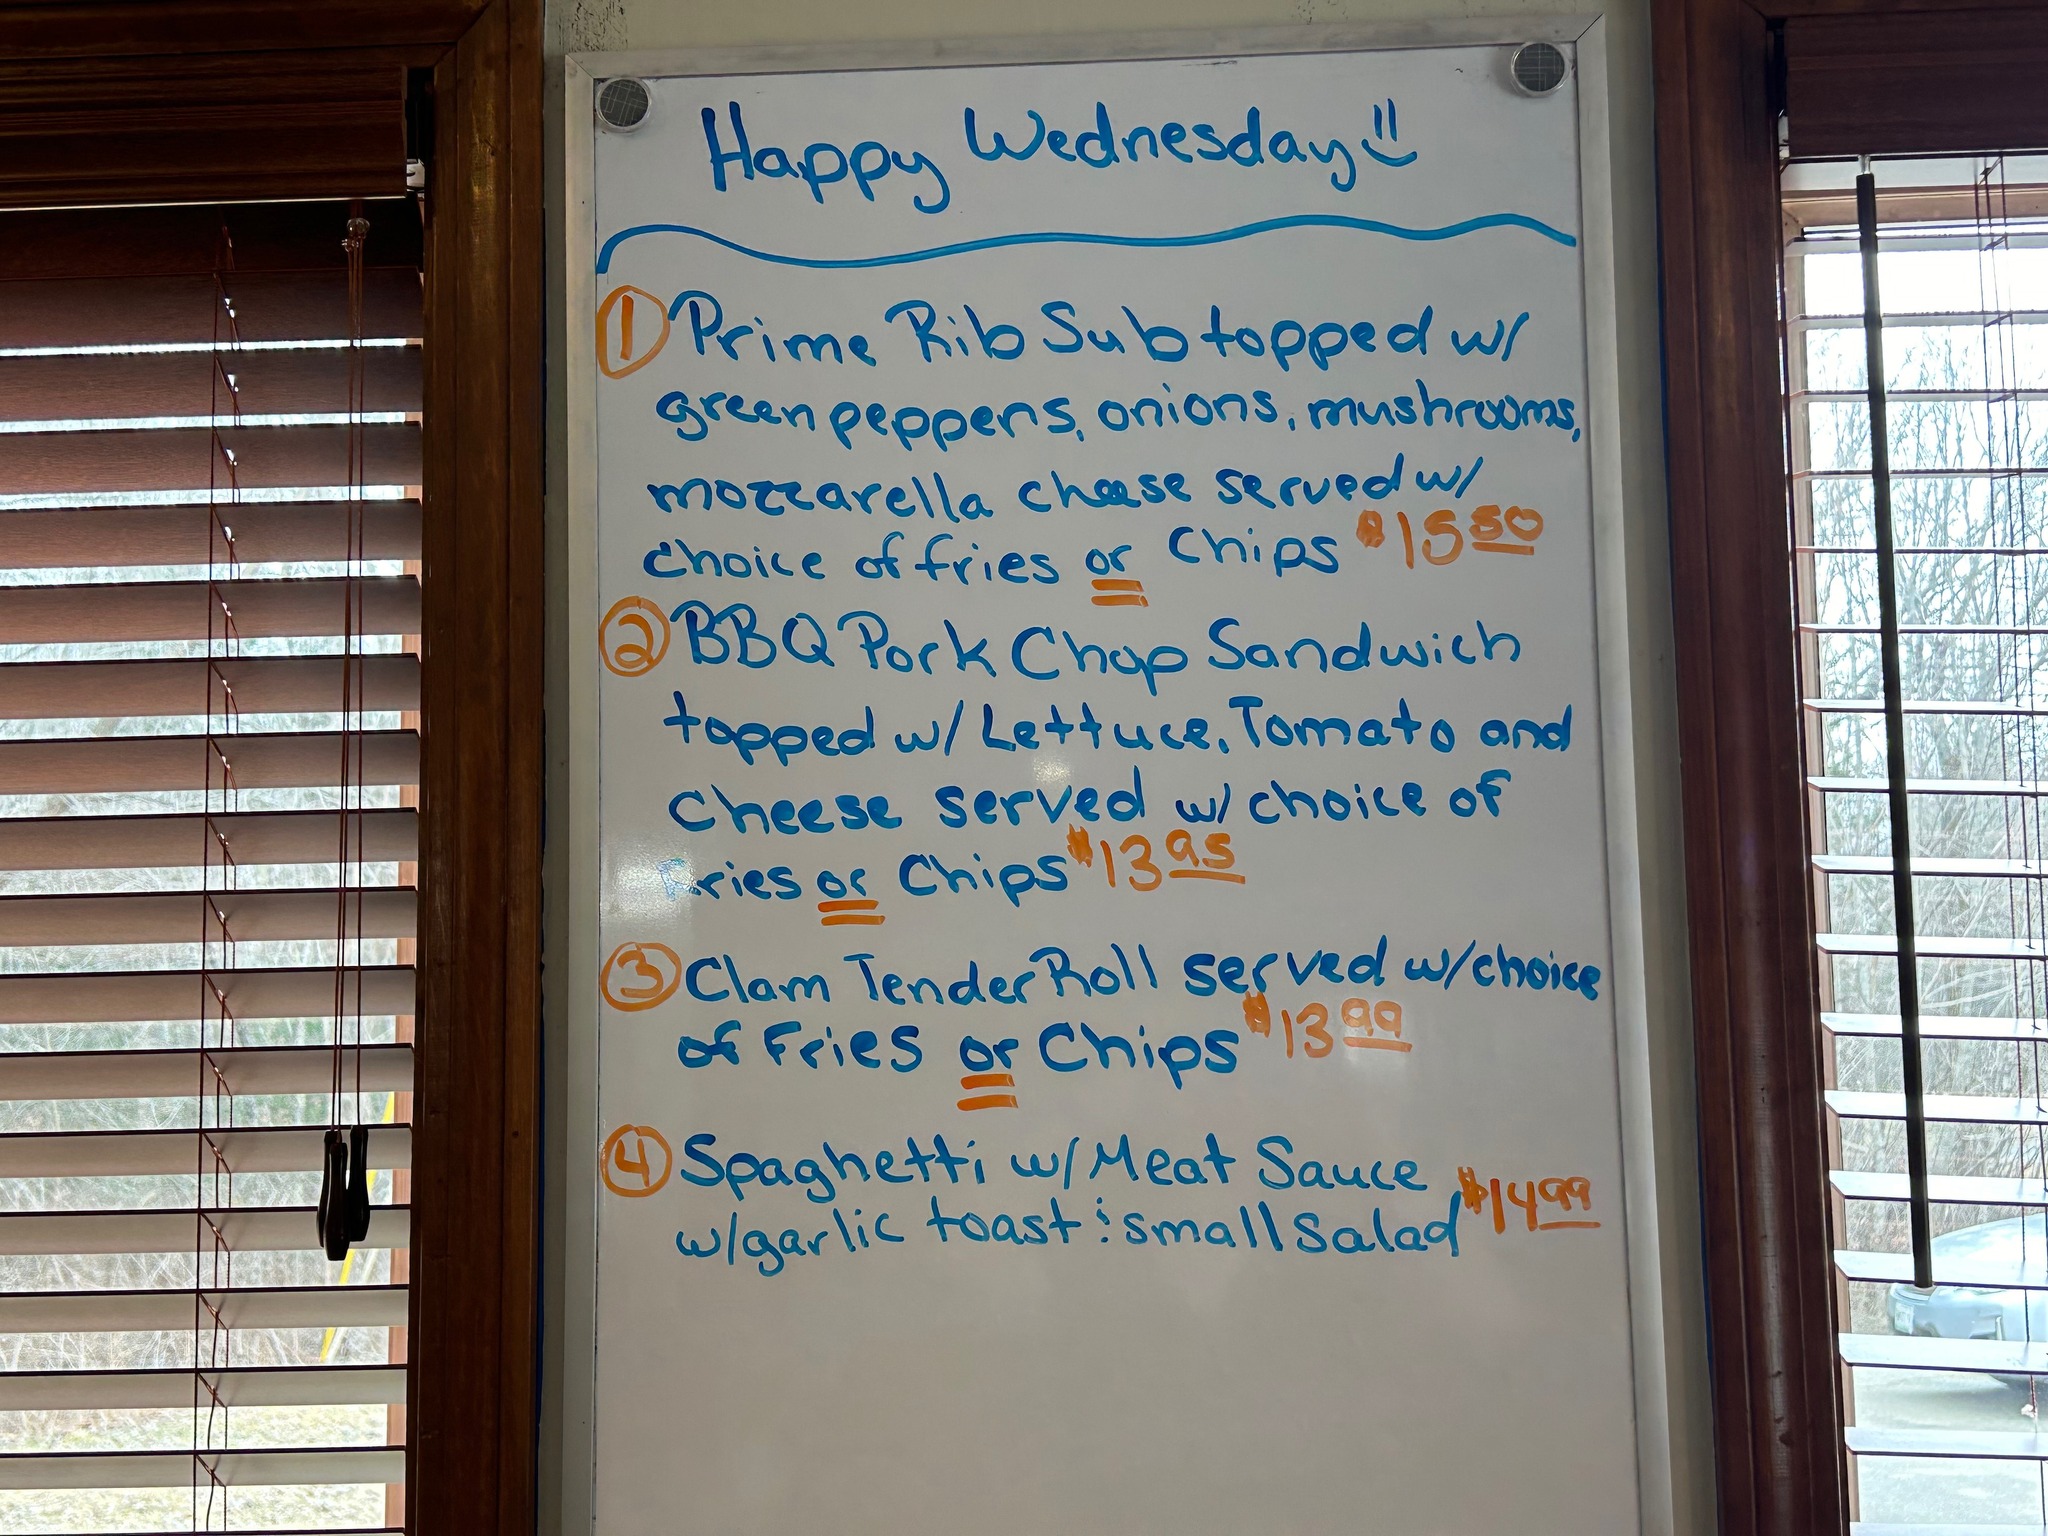 Happy Wednesday
1 Prime Rib Sub topped w/
green peppers, onions, mushrooms,
mozzarella cheese served w/
choice of fries or Chips $15.50
2 BBQ Pork Chop Sandwich
topped w/ Lettuce, Tomato and
Cheese served w/ choice of
Fries or Chips $13.95
3 Clam Tender Roll served w/ choice
of Fries or Chips $13.99
4 Spaghetti w/ Meat Sauce
w/ garlic toast & small salad $14.99